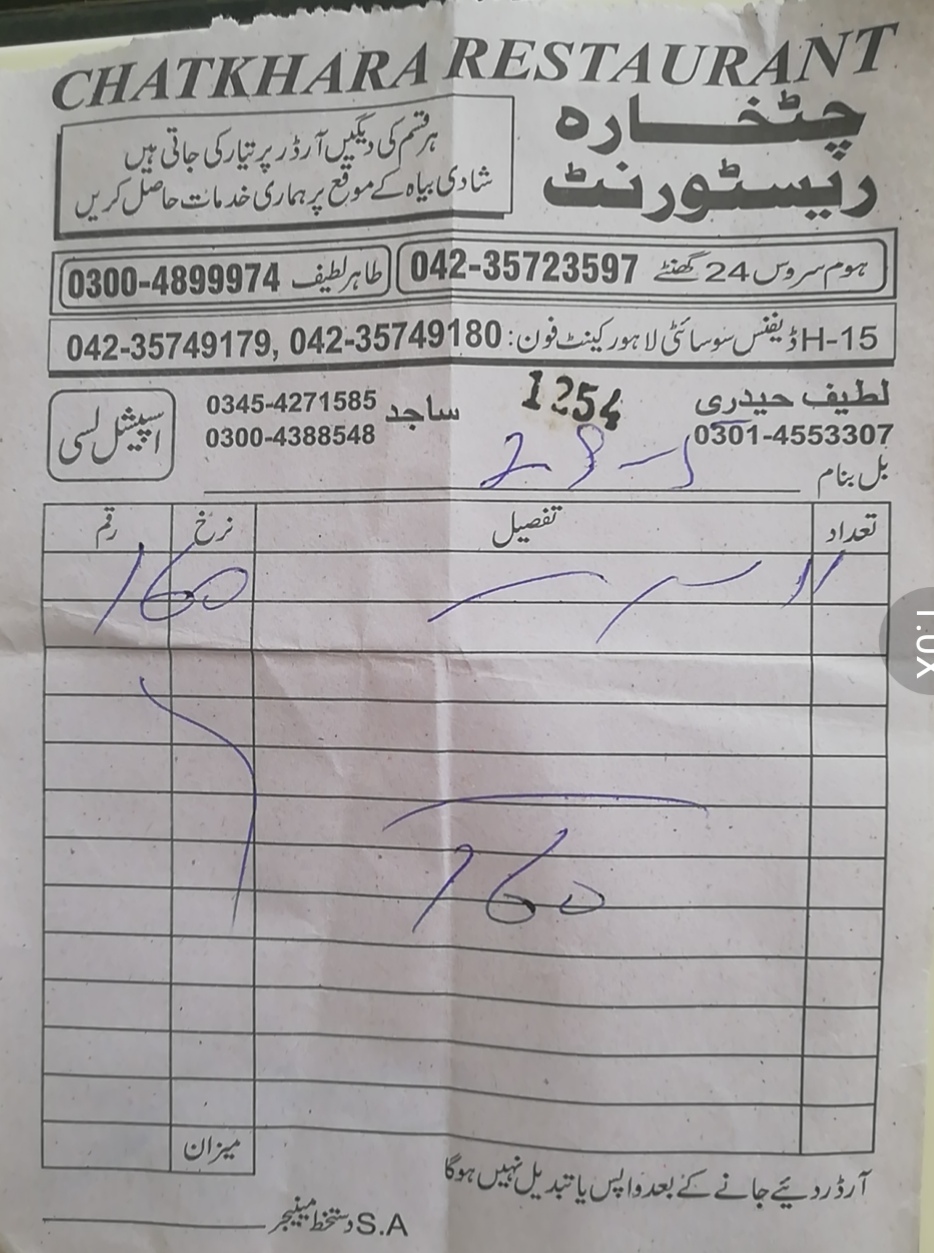 CHATKHARA RESTAURANT
چٹخارہ
ریسٹورنٹ
ہر قسم کی دیگیں آرڈر پر تیار کی جاتی ہیں
شادی بیاہ کے موقع پر ہماری خدمات حاصل کریں
ہوم سروس 24 گھنٹے 042-35723597
طاہر لطیف 0300-4899974
H-15 ڈیفنس سوسائٹی لاہور کینٹ فون: 042-35749179, 042-35749180
لطیف حیدری
0301-4553307
1254
ساجد 0345-4271585
0300-4388548
اسپیشل لسی
بل بنام
تعداد تفصیل نرخ رقم
160
160
میزان
آرڈر دیئے جانے کے بعد واپس یا تبدیل نہیں ہوگا
S.A دستخط مینیجر
1.0x